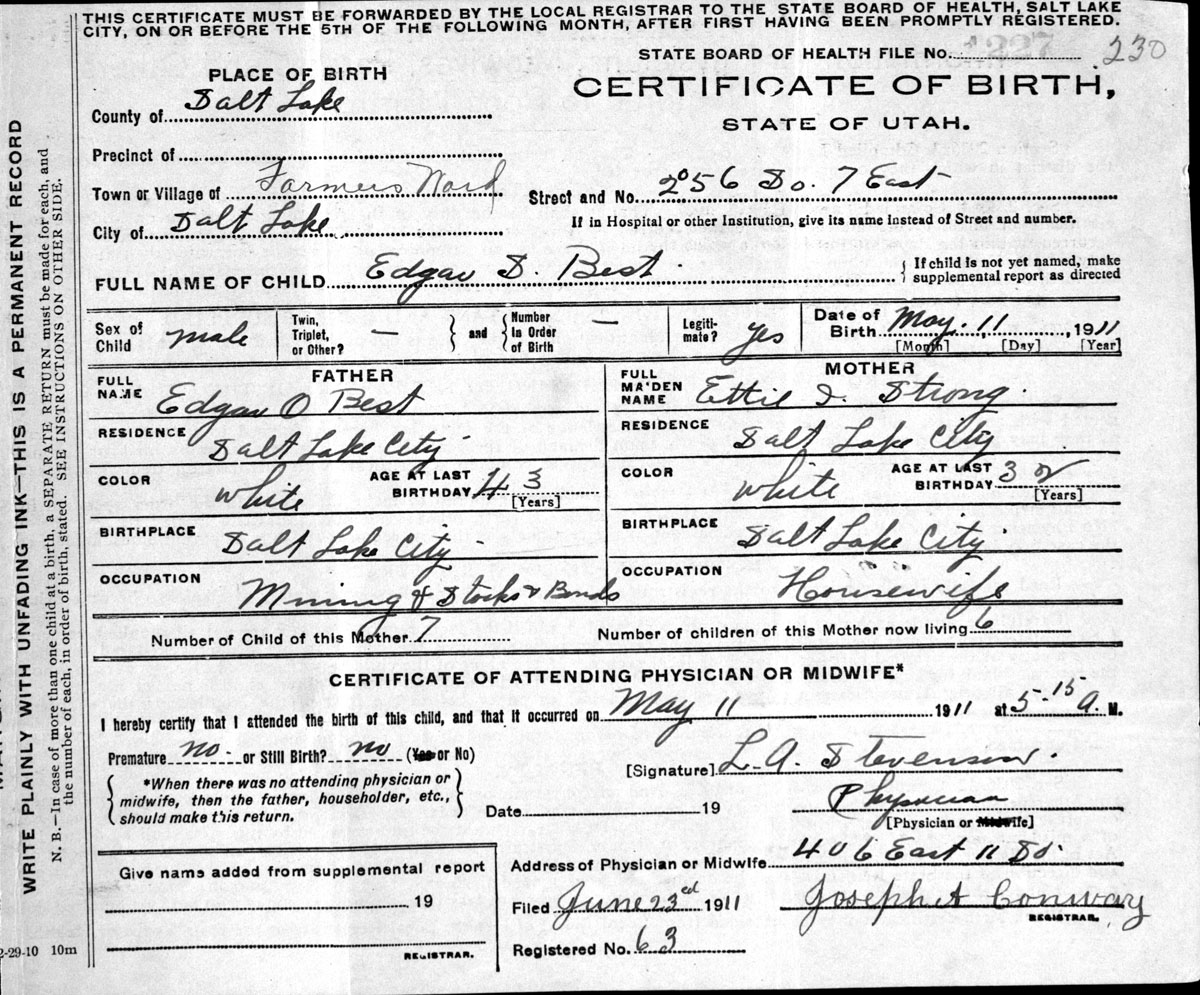 THIS CERTIFICATE MUST BE FORWARDED BY THE LOCAL REGISTRAR TO THE STATE BOARD OF HEALTH, SALT LAKE
CITY, ON OR BEFORE THE 5TH OF THE FOLLOWING MONTH, AFTER FIRST HAVING BEEN PROMPTLY REGISTERED.
STATE BOARD OF HEALTH FILE No. 230
PLACE OF BIRTH
CERTIFICATE OF BIRTH,
STATE OF UTAH.
County of Salt Lake
Precinct of
Town or Village of Farmers Ward
Street and No. 2056 So. 7 East
City of Salt Lake
If in Hospital or other Institution, give its name instead of Street and number.
FULL NAME OF CHILD Edgar S. Best
If child is not yet named, make
supplemental report as directed
Sex of
Child male
Twin,
Triplet,
or Other? —
and
Number
in Order
of Birth —
Legiti-
mate? yes
Date of
Birth May 11, 1911
[Month] [Day] [Year]
FATHER
FULL
NAME Edgar O Best
RESIDENCE Salt Lake City
COLOR white
AGE AT LAST
BIRTHDAY 43
[Years]
BIRTHPLACE Salt Lake City
OCCUPATION Mining & Stocks & Bonds
MOTHER
FULL
MAIDEN
NAME Ettie I. Strong
RESIDENCE Salt Lake City
COLOR white
AGE AT LAST
BIRTHDAY 32
[Years]
BIRTHPLACE Salt Lake City
OCCUPATION Housewife
Number of Child of this Mother 7
Number of children of this Mother now living 6
CERTIFICATE OF ATTENDING PHYSICIAN OR MIDWIFE*
I hereby certify that I attended the birth of this child, and that it occurred on May 11 1911 at 5-15 A. M.
Premature no or Still Birth? no (Yes or No)
*When there was no attending physician or
midwife, then the father, householder, etc.,
should make this return.
[Signature] L. A. Stevenson
Date 19
Physician
[Physician or Midwife]
Give name added from supplemental report
19
REGISTRAR.
Address of Physician or Midwife 406 East 11 So.
Filed June 23rd 1911
Joseph A Conway
REGISTRAR.
Registered No. 63
WRITE PLAINLY WITH UNFADING INK—THIS IS A PERMANENT RECORD
N. B.—In case of more than one child at a birth, a SEPARATE RETURN must be made for each, and
the number of each, in order of birth, stated. SEE INSTRUCTIONS ON OTHER SIDE.
2-29-10 10m